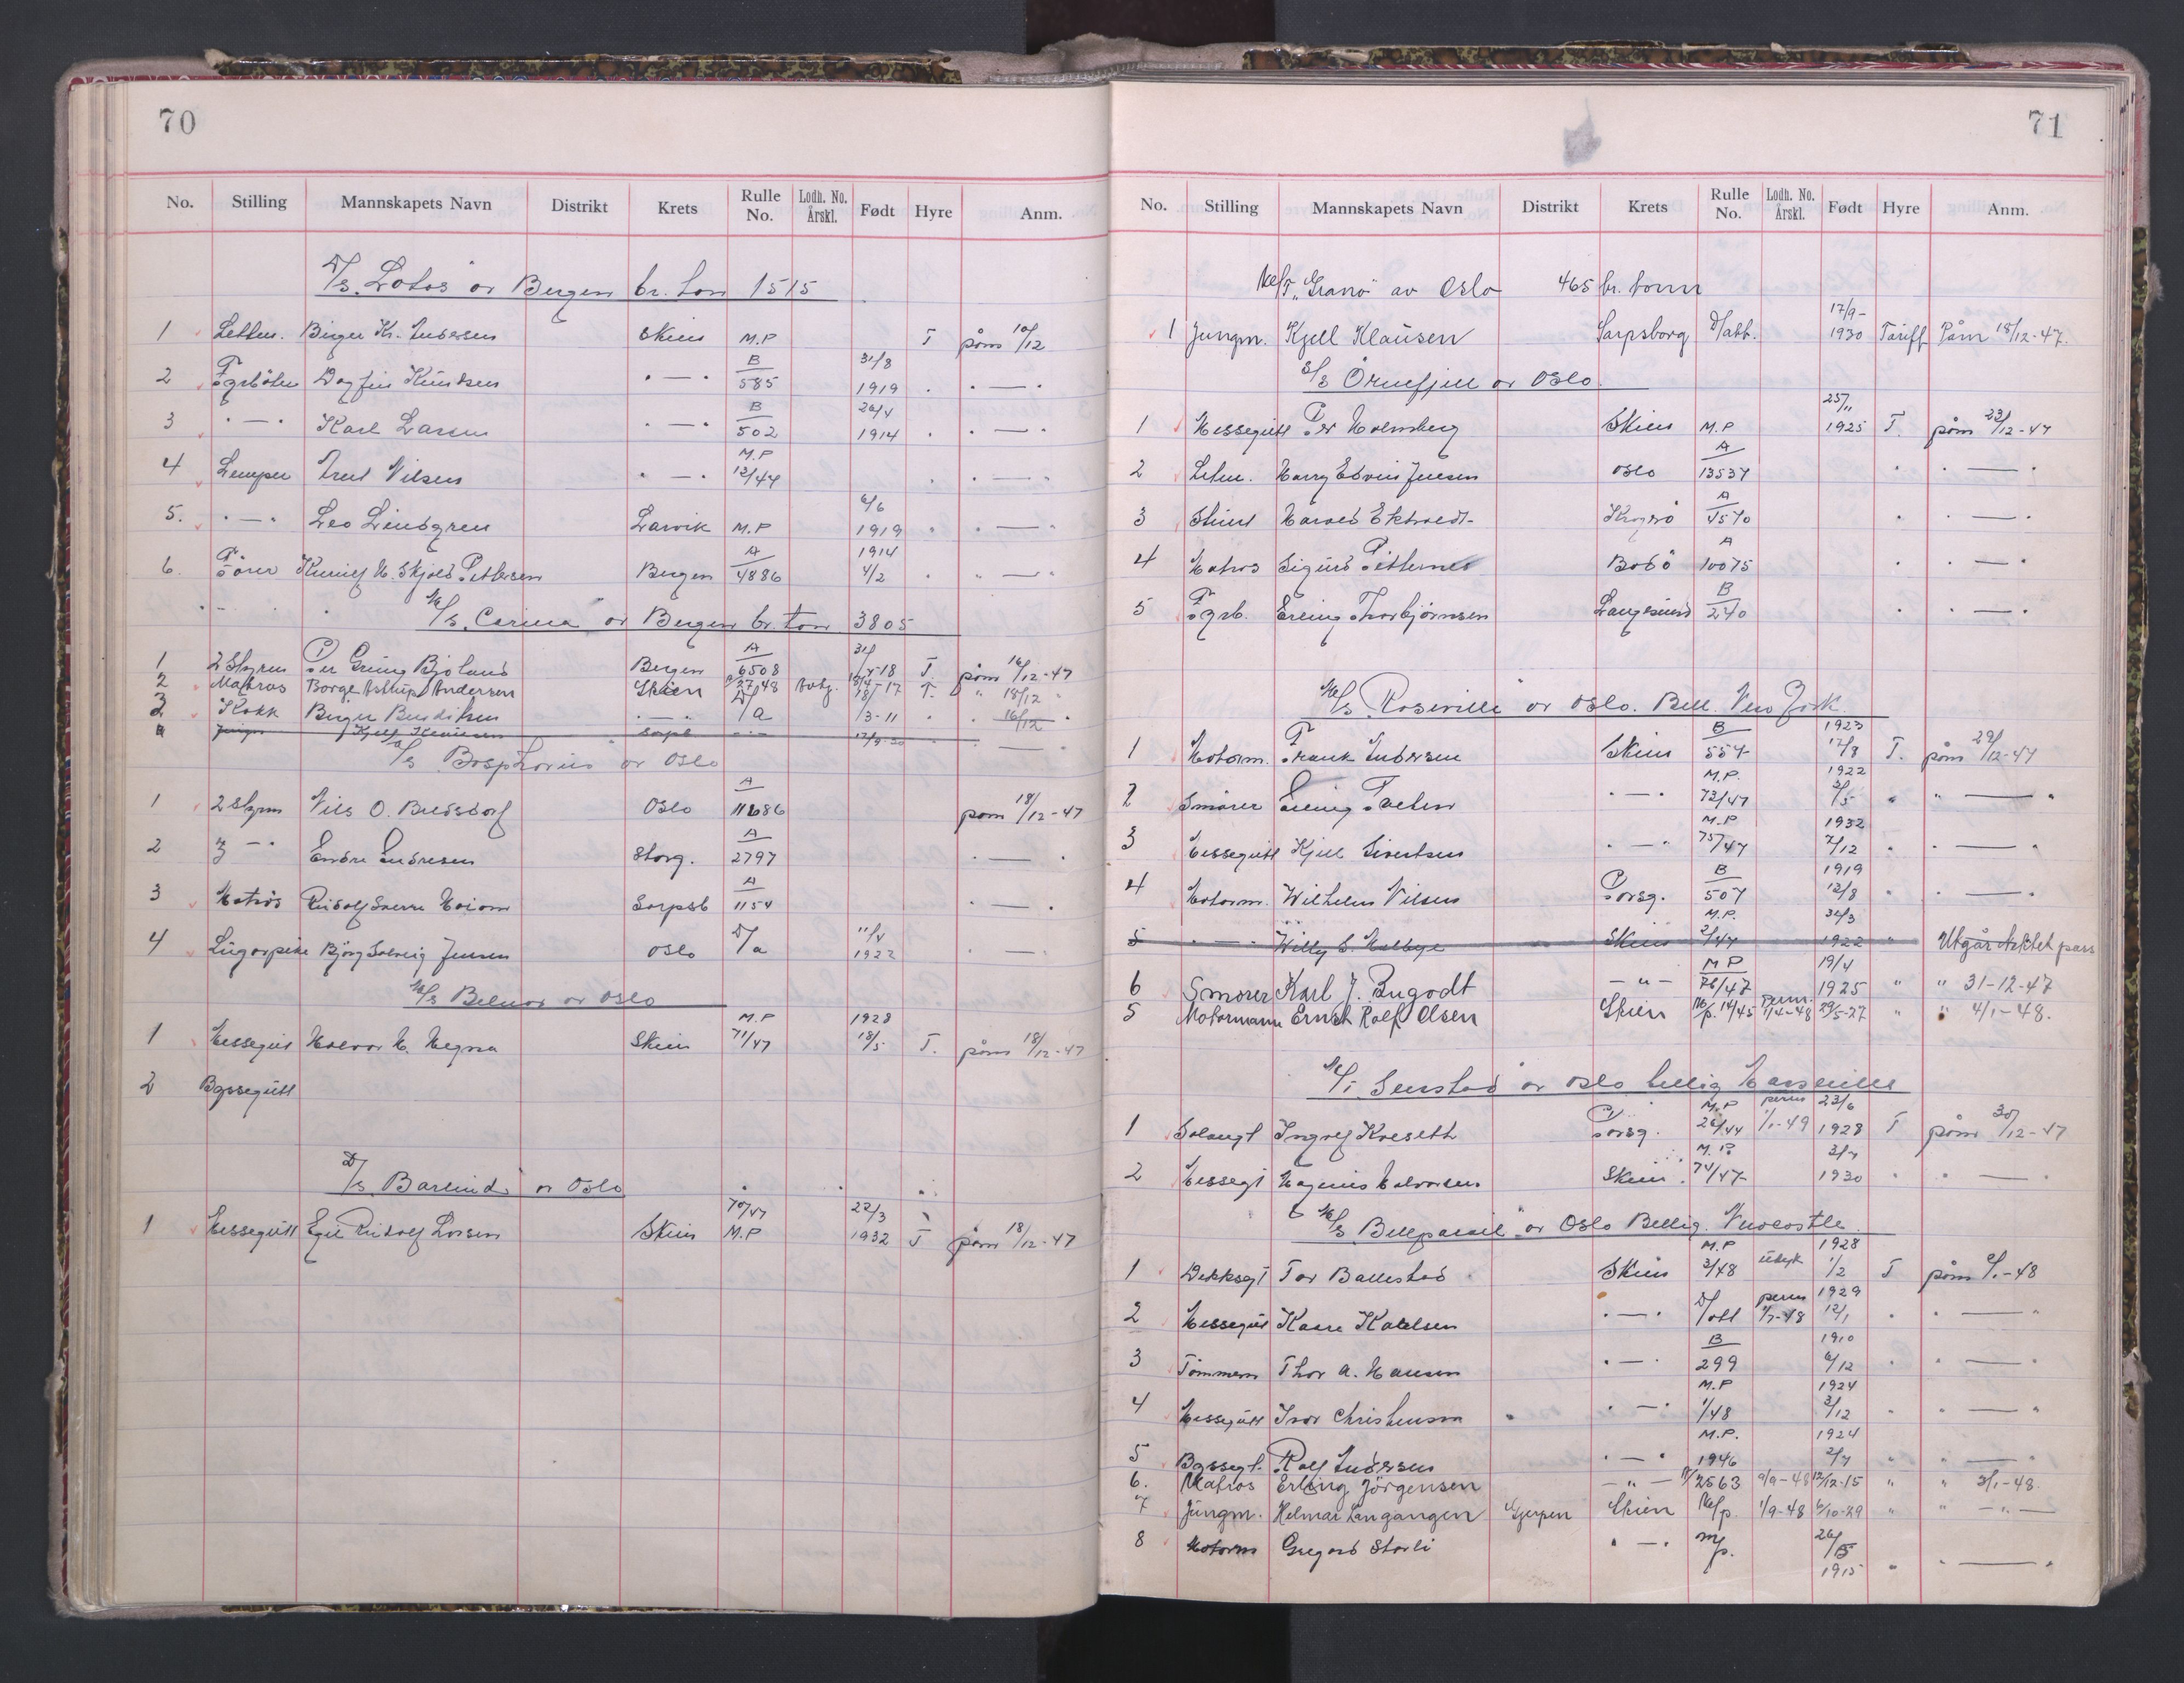 70
No. Stilling Mannskapets Navn Distrikt Krets Rulle No. Lodh. No. Årskl. Født Hyre Anm.
D/S. "Lotos" av Bergen br. ton 1515
1 Lettm. Birger Kr. Andersen Skien M.P T påm 10/12
2 Fyrbøter Dagfin Knudsen " — " B 585 31/8 1919 " " — "
3 " — " Karl Larsen " — " B 502 26/4 1914 " " — "
4 Lemper Arnt Nilsen " — " M.P 12/44 " " — "
5. " — " Leo Lindgren Larvik M.P 6/6 1919 " " — "
6. Fører H. Skjold Pettersen Bergen A 4886 1914 4/2 " " — "
M/S. "Carina" av Bergen br. tonn 3805
1 2 Styrm Per Grung Bjoland Bergen A 6508 -18 T. påm 16/12-47
2 Matros Børge Astrup Andersen Skien 2748 -17 T. " 18/12 "
3 Kokk Birger Bendiksen " — " D/a 18/3-11 " " 16/12 "
4 Jungm Kjell Klausen Sarpb " — " 17/9-30 " — "
D/S Bosphorus av Oslo
1 2 Styrm Nils O. Bredsdorf Oslo A 11686 påm 18/12-47
2 3 — " Endre Endresen Storg. A 2797 " — "
3 Matros Rudolf Sverre Sarpsb A 1154 " — "
4 Lugarpike Bjørg Solveig Jensen Oslo D/a 11/4 1922 " — "
M/S Belnor av Oslo
1 Messegut Halvor H. Hegna Skien M.P 71/47 1928 18/5 T. påm 18/12-47
2 Byssegutt
D/S. "Barlind" av Oslo
1 Messegutt Egil Rudolf Larsen Skien 70/47 M.P 22/3 1932 T påm 18/12-47
71
No. Stilling Mannskapets Navn Distrikt Krets Rulle No. Lodh. No. Årskl. Født Hyre Anm.
M/T. "Grano" av Oslo 465 br. tonn
1 Jungm. Kjell Klausen Sarpsborg D/att. 17/9- 1930 Tariff Påm 18/12-47.
S/S Ørnefjell av Oslo.
1 Messegutt Per Holmberg Skien M.P 25/11 1925 T. påm 23/12-47
2 Letm. Harry Edvin Jensen Oslo A 13537 " " — "
3 Stuert Harald Kragerø A 4570 " " — "
4 Matros Sigurd Bodø A 10075 " " — "
5 Fyrb. Erling Thorbjørnsen Langesund B 240 " " — "
M/S. "Roseville" av Oslo. Bell. New York.
1 Motorm. Frank Andersen Skien B 554 1923 17/8 T. påm 29/12-47
2 Smører Erling " — " M.P. 73/47 1922 3/5 " " — "
3 Messegutt Kjell Sivertsen " — " M.P 75/47 1932 7/12 " " — "
4 Motorm. Wilhelm Nilsen Porsg. B 507 1919 12/8 " " — "
5 " — " Willy Skien M.P. 2/47 1922 " Utgår pass
6 Smører Karl J. Bugodt — " — M P 76/47 19/4 1925 " " 31-12-47
5 Motormann Ernst Rolf Olsen Skien M/p. 14/45 perm. 1/4-48 29/5-27 " " 4/1-48.
M/T. "Senstad" av Oslo bellig. Marseille
1 Salongt Ingolf Kveseth Porsg. M.P 26/44 perm 1/1-49 23/6 1928 T påm 30/12-47
2 Messegt Magnus Halvorsen Skien. M.P. 74/47 1930 " " — "
M/S "Belle" av Oslo Bellig. Newcastle.
1 Dekksgt Tor Ballestad Skien M.P 3/48 udsyk 1928 1/2 T påm 2/1-48
2 Messegut Kaare Karlsen " — " D/att perm 1/7-48 1929 12/1 " " — "
3 Tømmerm Thor A. Hansen " — " B 299 1910 6/12 " " — "
4 Messegutt Ivar Christensen " — " M.P 1/48 1924 3/12 " " — "
5 Byssegt. Rolf Andersen " — " M.P. 1946 1924 2/7 " " — "
6. Matros Erling Jörgensen — " — 2563 9/9-48 12/12-15 " " 3/1-48.
7 Jungm. Helmar Langangen Gjerpen Skien M/p. 1/9-48 6/10-29 " " — " —
8 Motorm Gregard Storli " — " M/p. 26/5 1915 " " — "